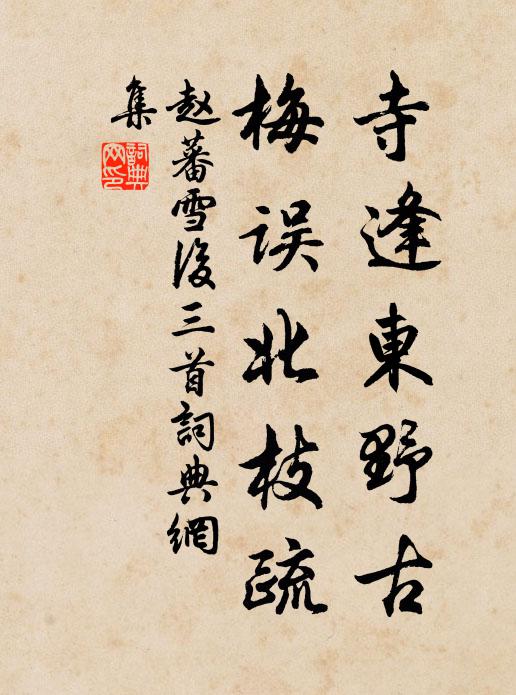 寺逢東野古
梅误北枝疏
赵蕃雪後三首詞典網
集
詞典
网印